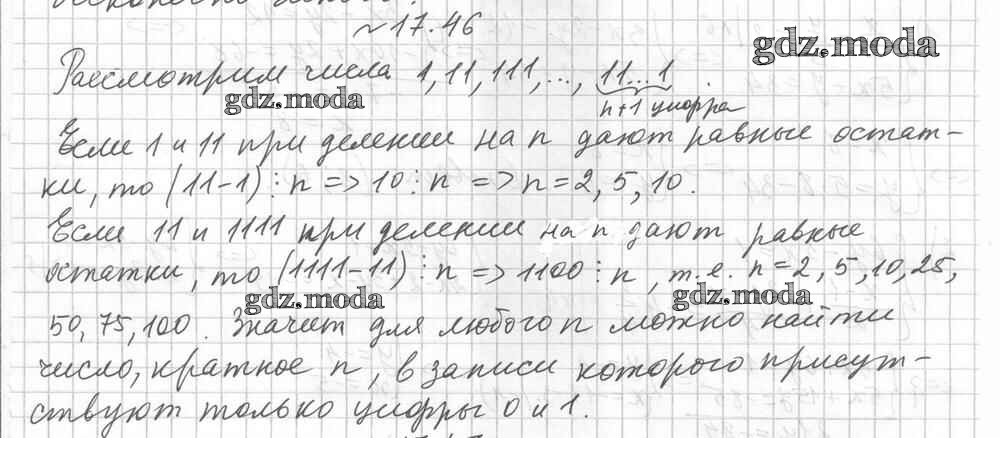 №17.46
gdz.moda
Рассмотрим числа 1, 11, 111, ..., 11...1 .
n+1 цифра
gdz.moda
Если 1 и 11 при делении на n дают равные остат-
ки, то (11-1)⋮n => 10⋮n => n=2, 5, 10.
Если 11 и 1111 при делении на n дают равные
остатки, то (1111-11)⋮n => 1100⋮n, т.е. n=2, 5, 10, 25,
gdz.moda
gdz.moda
50, 75, 100. Значит для любого n можно найти
число, кратное n, в записи которого присут-
ствуют только цифры 0 и 1.